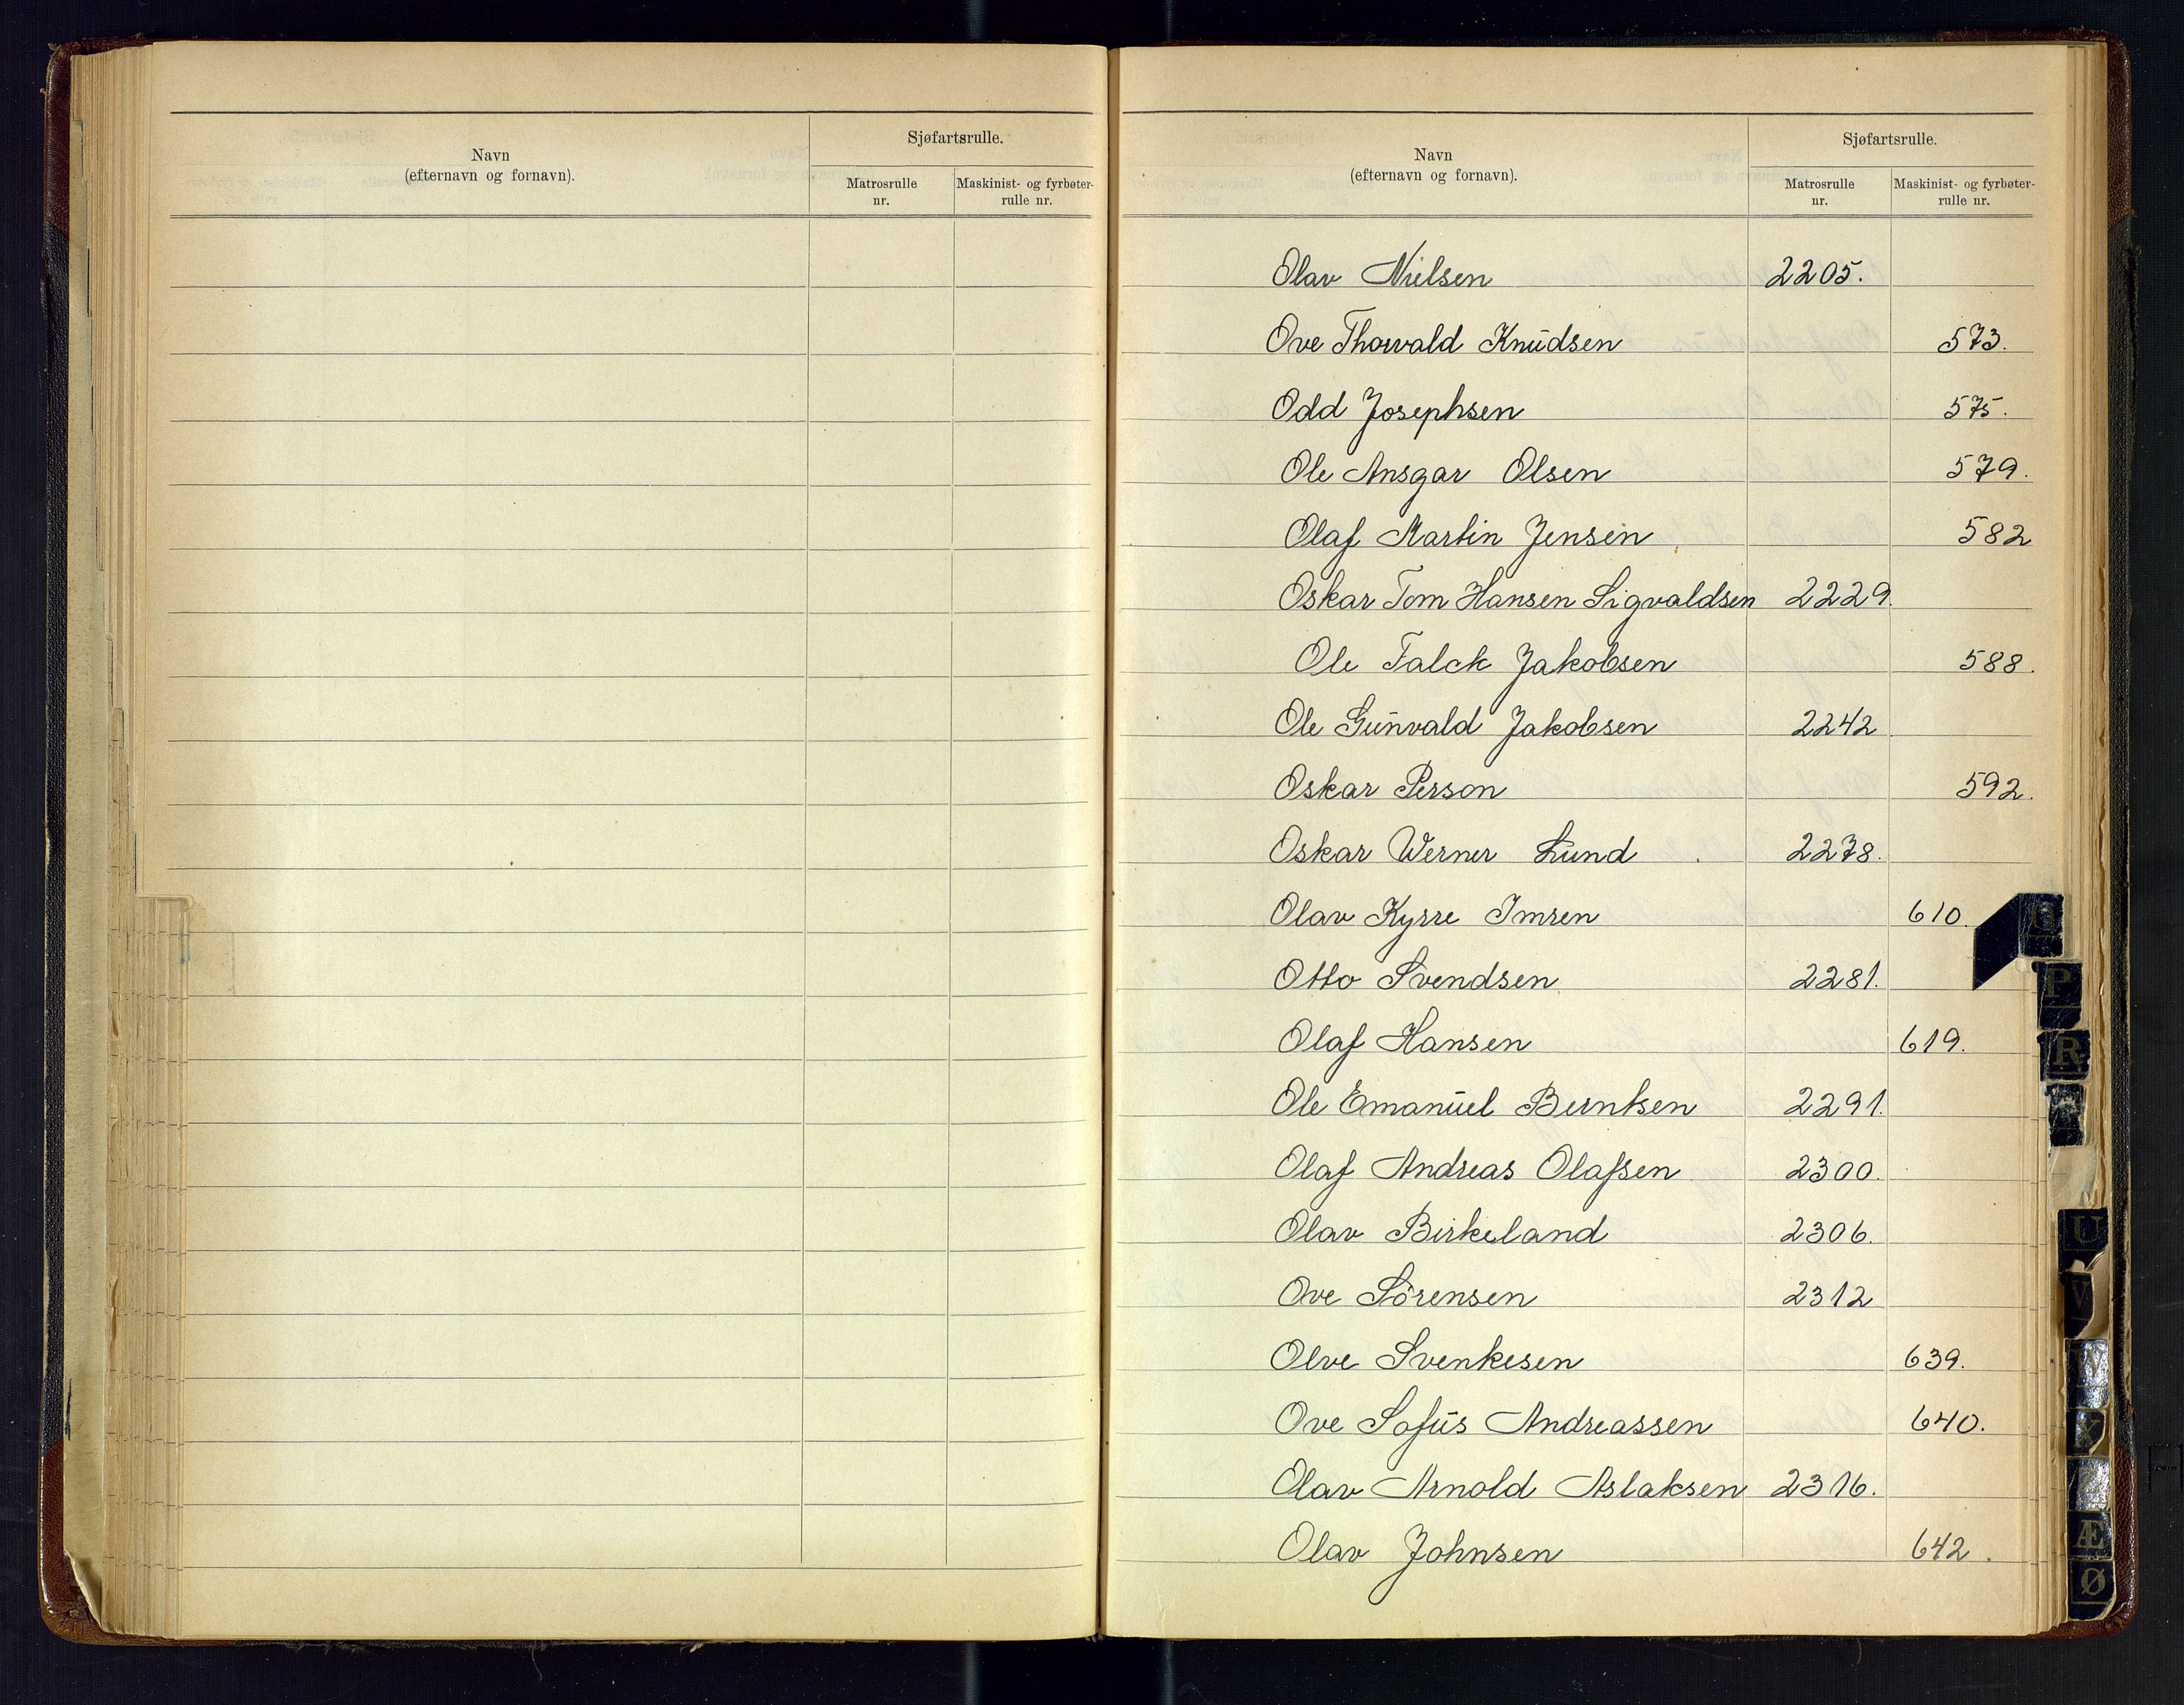 Navn
(efternavn og fornavn).
Sjøfartsrulle.
Matrosrulle
nr.
Maskinist- og fyrbøter-
rulle nr.
Navn
(efternavn og fornavn).
Sjøfartsrulle.
Matrosrulle
nr.
Maskinist- og fyrbøter-
rulle nr.
Olav Nielsen 2205.
Ove Thorvald Knudsen 573.
Odd Josephsen 575.
Ole Ansgar Olsen 579.
Olaf Martin Jensen 582
Oskar Tom Hansen Sigvaldsen 2229.
Ole Falck Jakobsen 588.
Ole Gunvald Jakobsen 2242
Oskar Person 592.
Oskar Werner Lund 2278.
Olav Kyrre Imsen 610.
Otto Svendsen 2281.
Olaf Hansen 619.
Ole Emanuel Berntsen 2291.
Olaf Andreas Olafsen 2300.
Olav Birkeland 2306.
Ove Sörensen 2312
Olve Svenkesen 639.
Ove Sofus Andreassen 640.
Olav Arnold Aslaksen 2316.
Olav Johnsen 642.
O
P
R
U
V
W
Y
Æ
Ø